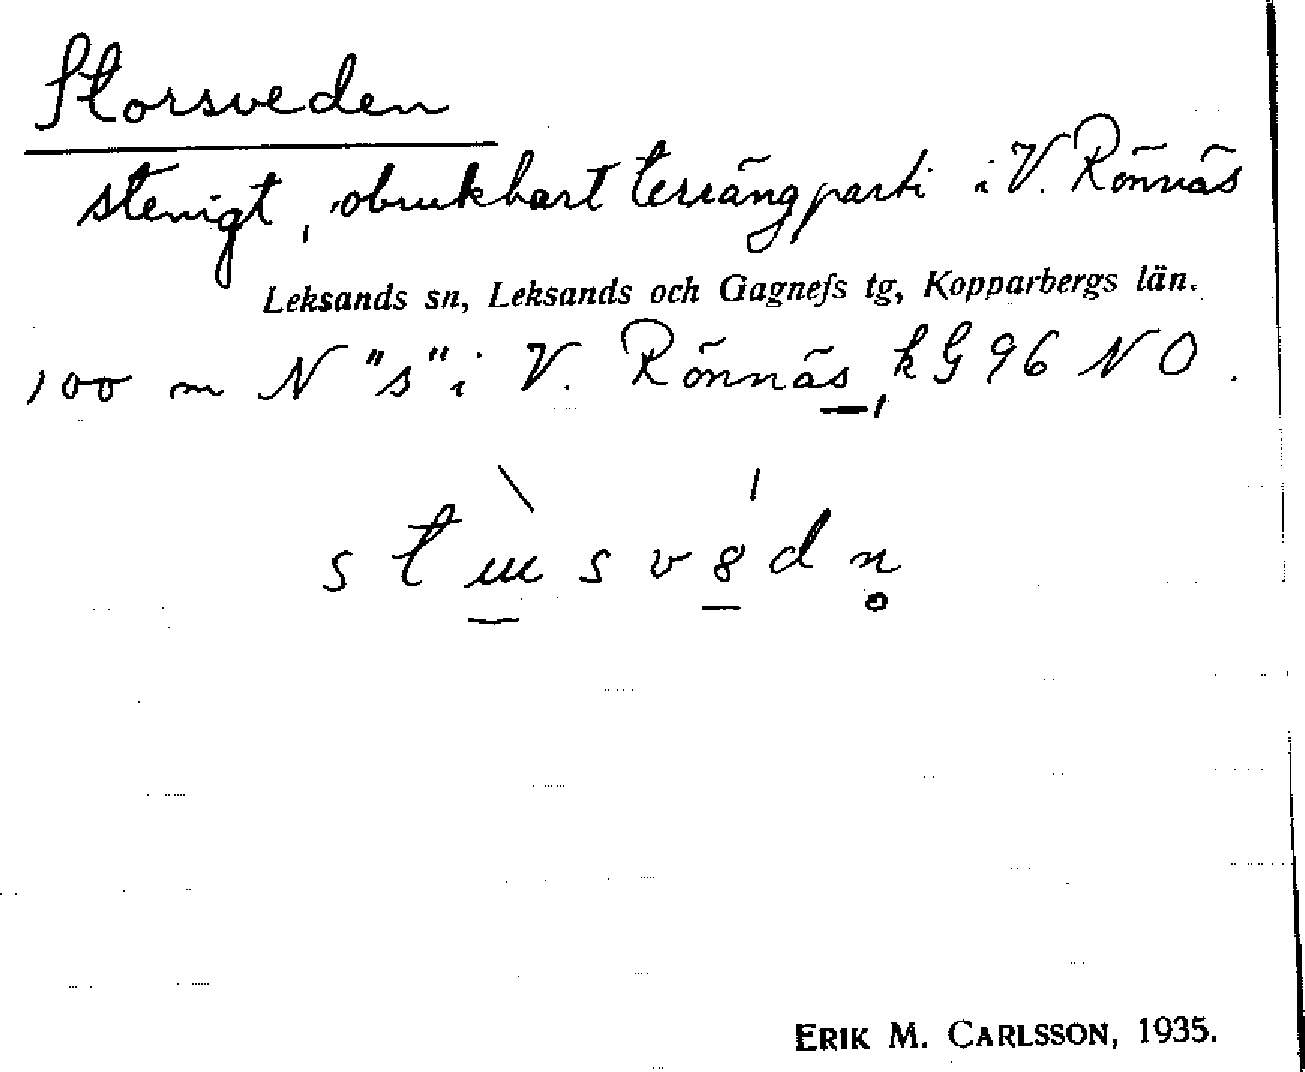 Storsveden
stenigt, obrukbart terrängparti i V. Rönnäs
Leksands sn, Leksands och Gagnefs tg, Kopparbergs län.
100 m N "s" i V. Rönnäs, kG 96 NO.
ERIK M. CARLSSON, 1935.